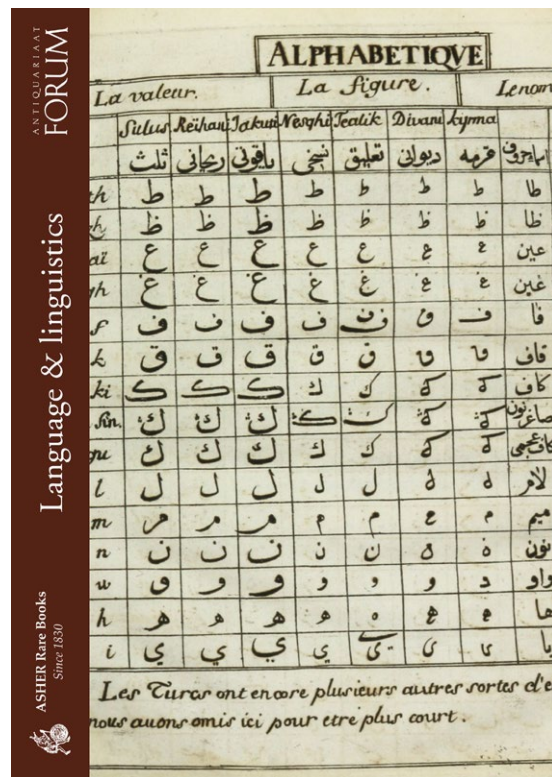 ANTIQUARIAAT
FORUM
Language & linguistics
ASHER Rare Books
Since 1830
ALPHABETIQVE
La valeur. La figure. Lenom
Sulus Reihani Jakuti Nesghi Tealik Divani kyrma
ثلث ريحانى ياقوتى نسخى تعليق ديوانى قرمه
th ط ط ط ط ط ط ط طا
ظ ظ ظ ظ ظ ظ ظ ظا
aï ع ع ع ع ع ع ع عين
gh غ غ غ غ غ غ غ غين
f ف ف ف ف ف ف ف فا
k ق ق ق ق ق ق ق قاف
ki ك ك ك ك ك ك ك كاف
ڭ ڭ ڭ ڭ ڭ ڭ ڭ صاغر نون
ك ك ك ك ك ك ك كاف عجمى
l ل ل ل ل ل ل ل لام
m م م م م م م م ميم
n ن ن ن ن ن ن ن نون
w و و و و و و و واو
h ه ه ه ه ه ه ه ها
i ي ي ي ي ي ي ي يا
Les Turcs ont encore plusieurs autres sortes d'e
nous auons omis ici pour etre plus court.